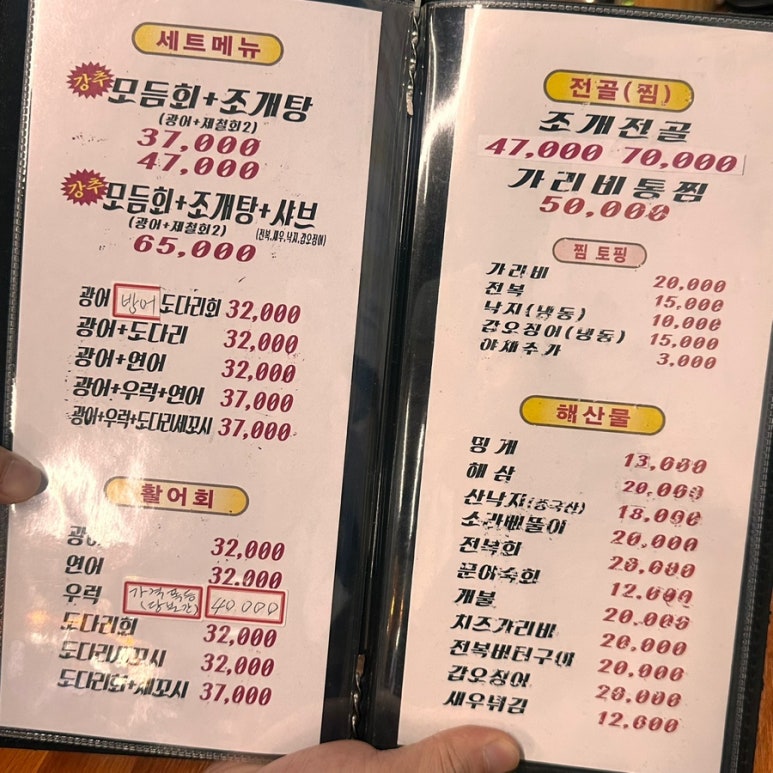 세트메뉴
강추 모듬회+조개탕
(광어+제철회2)
37,000
47,000
강추 모듬회+조개탕+샤브
(광어+제철회2) (전복,새우,낙지,갑오징어)
65,000
광어 방어 도다리회 32,000
광어+도다리 32,000
광어+연어 32,000
광어+우럭+연어 37,000
광어+우럭+도다리세꼬시 37,000
활어회
광어 32,000
연어 32,000
우럭 가격폭등 (당분간) 40,000
도다리회 32,000
도다리세꼬시 32,000
도다리회+세꼬시 37,000
전골(찜)
조개전골
47,000 70,000
가리비통찜
50,000
찜 토핑
가리비 20,000
전복 15,000
낙지(냉동) 10,000
갑오징어(냉동) 15,000
야채추가 3,000
해산물
멍게 13,000
해삼 20,000
산낙지(중국산) 18,000
소라삐뚤이 20,000
전복회 20,000
문어숙회 12,000
개불 20,000
치즈가리비 20,000
전복버터구이 20,000
갑오징어 20,000
새우튀김 12,000